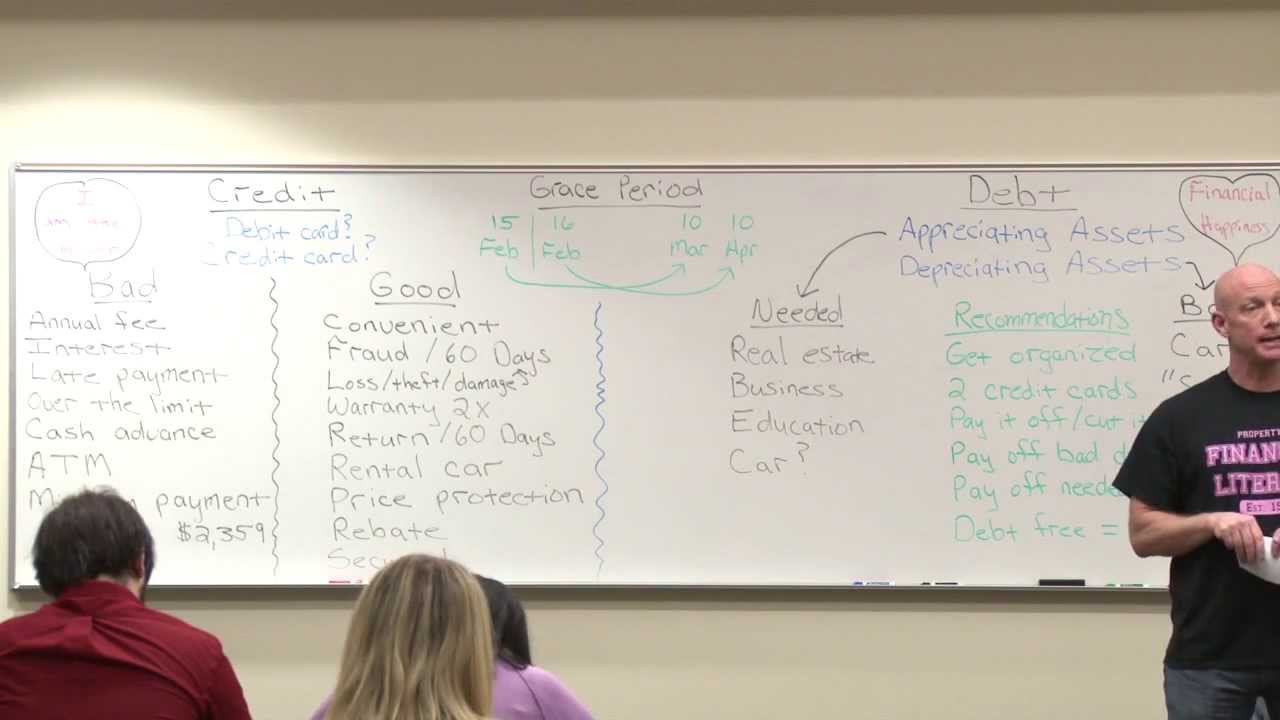 I
Credit
Debit card?
Credit card?
Bad
Annual fee
Interest
Late payment
Over the limit
Cash advance
ATM
payment
$2,359
Good
Convenient
Fraud / 60 Days
Loss/theft/damage
Warranty 2X
Return / 60 Days
Rental car
Price protection
Rebate
Grace Period
15 16 10 10
Feb Feb Mar Apr
Debt
Appreciating Assets
Depreciating Assets
Needed
Real estate
Business
Education
Car?
Recommendations
Get organized
2 credit cards
Pay it off/cut it
Pay off bad
Pay off
Debt free =
Financial
Happiness
Car
PROPERTY